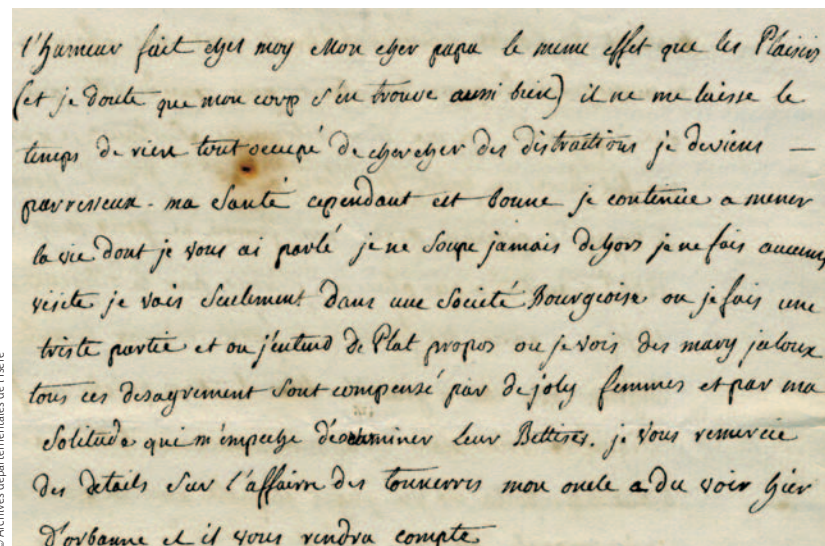 l'humeur fait ches moy Mon cher papa le meme effet que les Plaisirs
(et je doute que mon corp s'en trouve aussi bien) il ne me laisse le
temps de rien tout occupé de chercher des distractions je deviens —
parresseux - ma Santé cependant est bonne je continue a mener
la vie dont je vous ai parlé je ne Soupe jamais dehors je ne fais aucunes
visite je vais Seulement dans une Société Bourgeoise ou je fais une
triste partie et ou j'entend de Plat propos ou je vois des mary jaloux
tous ces desagrement Sont compensé par de joly femmes et par ma
Solitude qui m'empeche d'examiner leur Bettises. je vous remercie
des details Sur l'affaire des tonnerres mon oncle a du voir hier
D'orbanne et il vous rendra compte
© Archives départementales de l'Isère